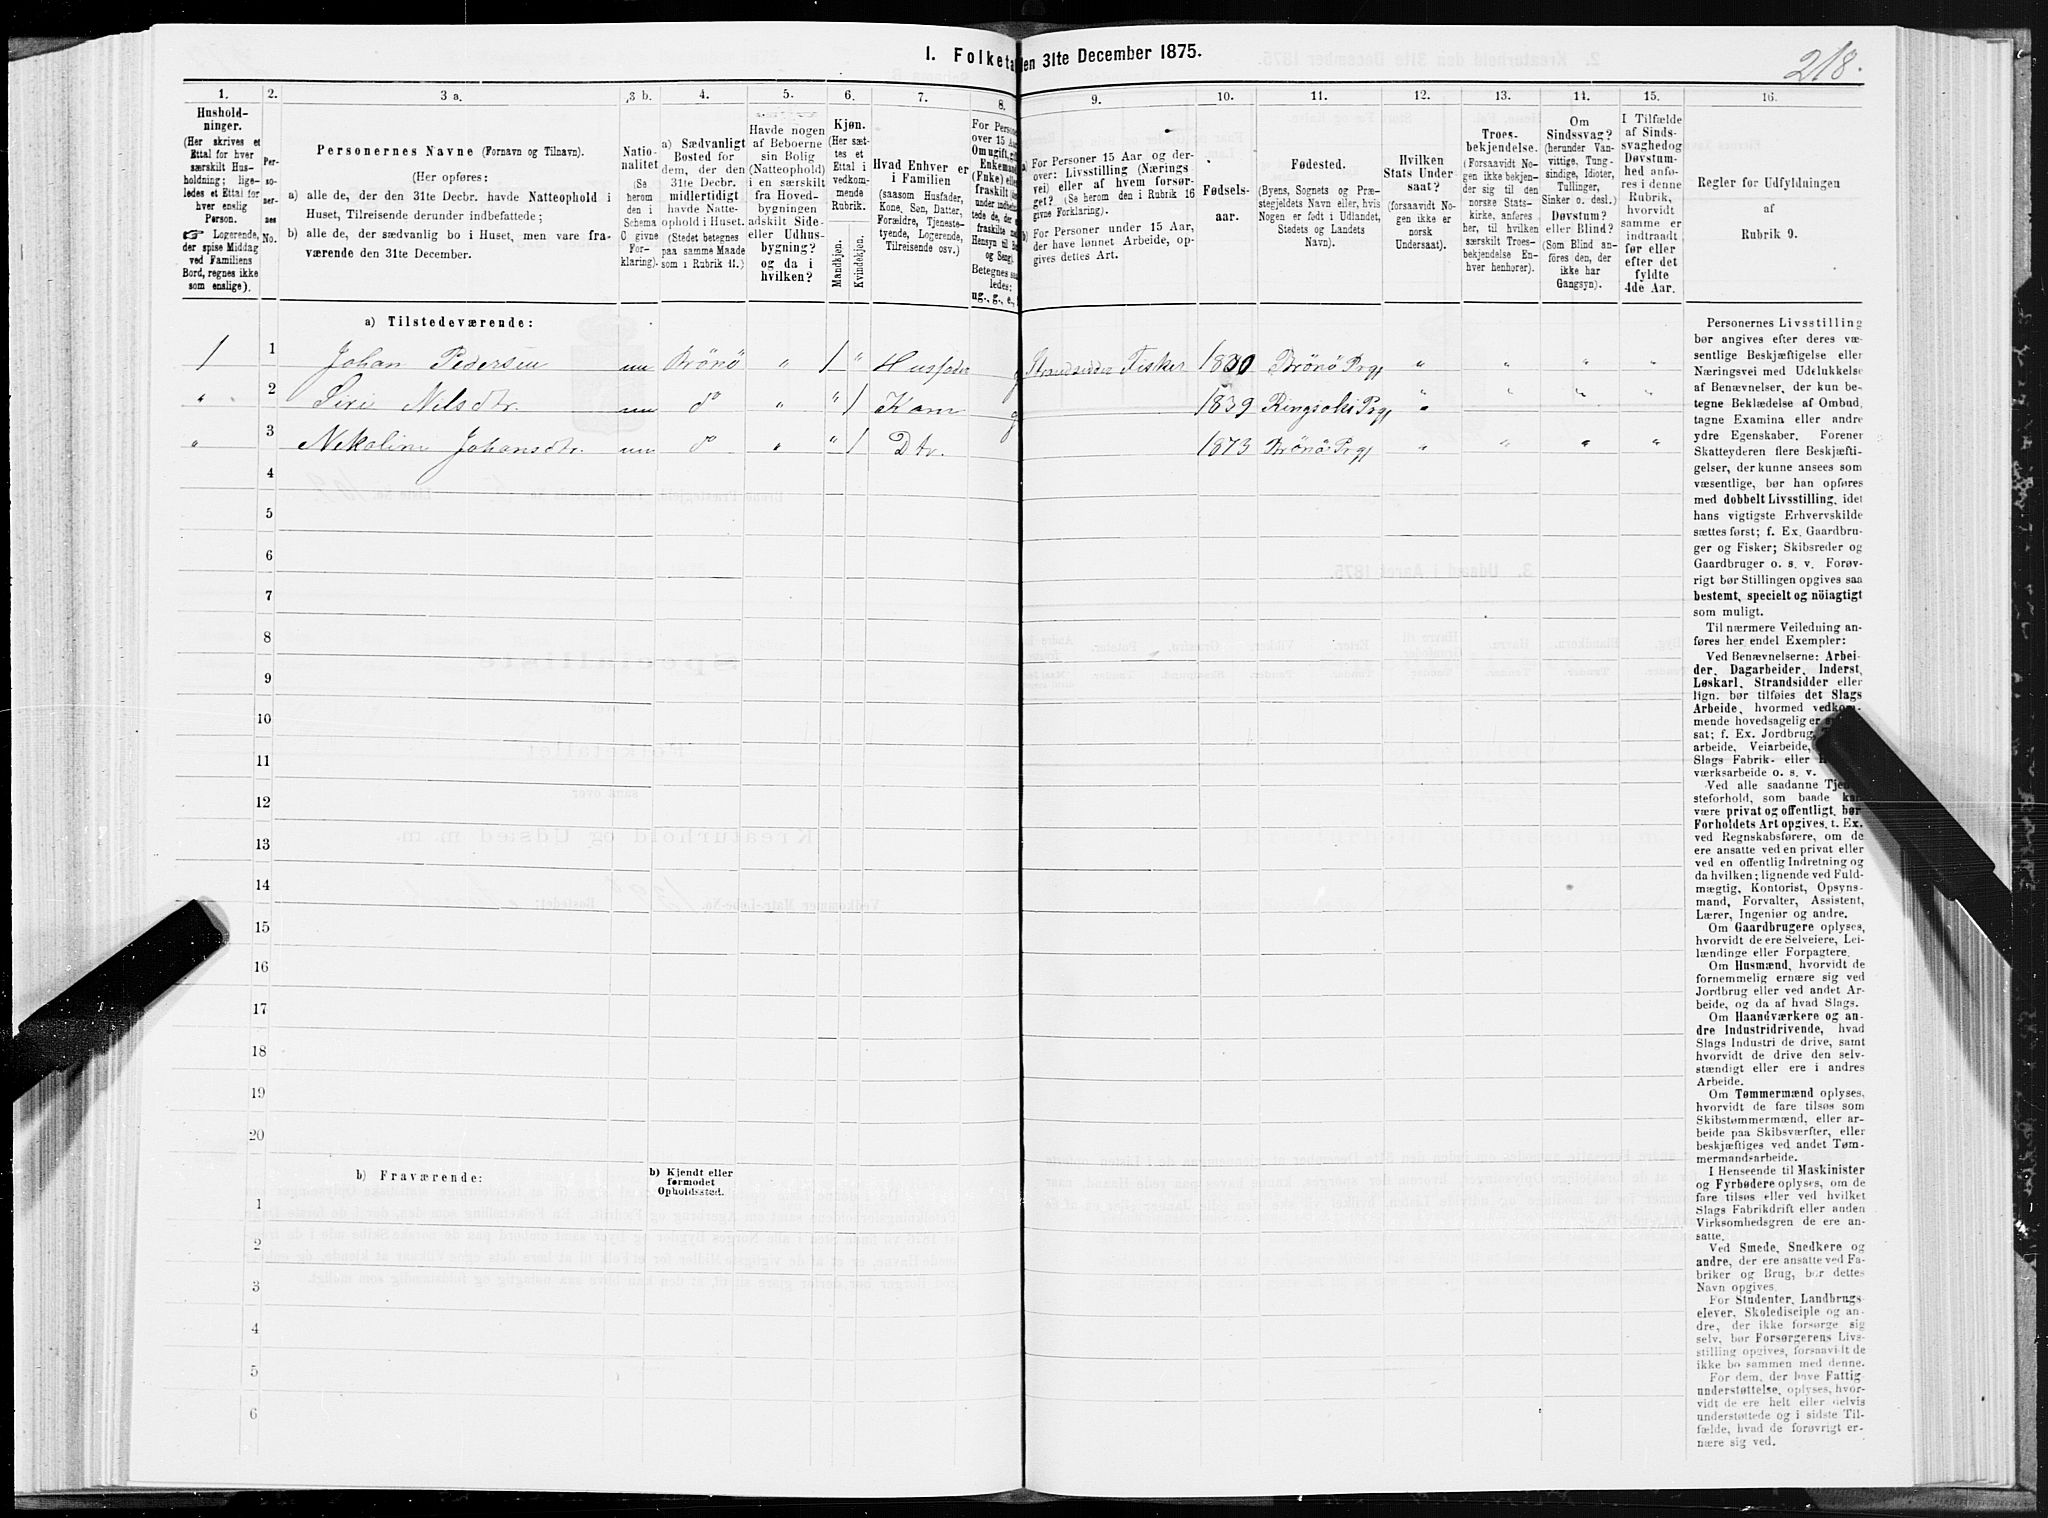 I. Folketa en 31te December 1875.
218.
1.
Hushold-
ninger.
(Her skrives et
Ettal for hver
særskilt Hus-
holdning; lige-
ledes et Ettal for
hver enslig
Person.
☞ Logerende,
der spise Middag
ved Familiens
Bord, regnes ikke
som enslige).
2.
Per-
so-
ner-
nes
No.
3 a.
Personernes Navne (Fornavn og Tilnavn).
(Her opføres:
a) alle de, der den 31te Decbr. havde Natteophold i
Huset, Tilreisende derunder indbefattede;
b) alle de, der sædvanlig bo i Huset, men vare fra-
værende den 31te December.
3 b.
Natio-
nalitet
(Se
herom
den i
Schema
C givne
For-
klaring).
4.
a) Sædvanligt
Bosted for
dem, der den
31te Decbr.
midlertidigt
havde Natte-
ophold i Huset.
(Stedet betegnes
paa samme Maade
som i Rubrik 11.)
5.
Havde nogen
af Beboerne
sin Bolig
(Natteophold)
i en særskilt
fra Hoved-
bygningen
adskilt Side-
eller Udhus-
bygning?
og da i
hvilken?
6.
Kjøn.
(Her sæt-
tes et
Ettal i
vedkom-
mende
Rubrik.
Mandkjøn.
Kvindekjøn.
7.
Hvad Enhver er
i Familien
(saasom Husfader,
Kone, Søn, Datter,
Forældre, Tjeneste-
tyende, Logerende,
Tilreisende osv.)
8.
For Person
over 15 Aar
Om ugift, gift
Enkemand
(Enke) eller
fraskilt
under indbefat-
tede de, der
fraskilte
Hensyn til B
og Seng.
Betegnes saa-
ledes:
ug., g., e.,
9.
a) For Personer 15 Aar og der-
over: Livsstilling (Nærings-
vei) eller af hvem forsør-
get? (Se herom den i Rubrik 16
givne Forklaring).
b) For Personer under 15 Aar,
der have lønnet Arbeide, op-
gives dettes Art.
10.
Fødsels-
aar.
11.
Fødested.
(Byens, Sognets og Præ-
stegjeldets Navn eller, hvis
Nogen er født i Udlandet,
Stedets og Landets
Navn).
12.
Hvilken
Stats Under
saat?
(forsaavidt No-
gen ikke er
norsk
Undersaat).
13.
Troes-
bekjendelse.
(Forsaavidt No-
gen ikke bekjen-
der sig til den
norske Stats-
kirke, anføres
her, til hvilken
særskilt Troes-
bekjendelse En-
hver henhører).
14.
Om
Sindssvag?
(herunder Van-
vittige, Tung-
sindige, Idioter,
Tullinger,
Sinker o. desl.)
Døvstum?
eller Blind?
(Som Blind an-
føres den, der
ikke har
Gangsyn).
15.
I Tilfælde
af Sinds-
svaghed og
Døvstum-
hed anfø-
res i denne
Rubrik,
hvorvidt
samme er
indtraadt
før eller
efter det
fyldte
4de Aar.
16.
Regler for Udfyldningen
af
Rubrik 9.
a) Tilstedeværende:
1 1 Johan Pedersen nn Brönö " 1 " Husfader g Strandsidder Fisker 1830 Brönö Prgj " " " "
" 2 Siri Nilsdtr. nn do " " 1 Kone g 1839 Prgj " " " "
" 3 Nikoline Johansdtr. nn do " " 1 Dtr. 1873 Brönö Prgj " " " "
4
5
6
7
8
9
10
11
12
13
14
15
16
17
18
19
20
b) Fraværende:
b) Kjendt eller
formodet
Opholdssted.
1
2
3
4
5
6
Personernes Livsstilling
bør angives efter deres væ-
sentlige Beskjæftigelse eller
Næringsvei med Udelukkelse
af Benævnelser, der kun be-
tegne Beklædelse af Ombud,
tagne Examina eller andre
ydre Egenskaber. Forener
Skatteyderen flere Beskjæfti-
gelser, der kunne ansees som
væsentlige, bør han opføres
med dobbelt Livsstilling, idet
hans vigtigste Erhvervskilde
sættes først; f. Ex. Gaardbru-
ger og Fisker; Skibsreder og
Gaardbruger o. s. v. Forøv-
rigt bør Stillingen opgives saa
bestemt, specielt og nöiagtigt
som muligt.
Til nærmere Veiledning an-
føres her endel Exempler:
Ved Benævnelserne: Arbei-
der, Dagarbeider, Inderst,
Løskarl, Strandsidder eller
lign. bør tilføies det Slags
Arbeide, hvormed vedkom-
mende hovedsagelig er
sat; f. Ex. Jordbrug,
arbeide, Veiarbeide,
Slags Fabrik- eller
værksarbeide o. s. v.
Ved alle saadanne Tjen-
steforhold, som baade kan
være privat og offentligt, bør
Forholdets Art opgives, t. Ex.
ved Regnskabsførere, om de
ere ansatte ved en privat eller
ved en offentlig Indretning og
da hvilken; lignende ved Fuld-
mægtig, Kontorist, Opsyns-
mand, Forvalter, Assistent,
Lærer, Ingeniør og andre.
Om Gaardbrugere oplyses,
hvorvidt de ere Selveiere, Lei-
lændinge eller Forpagtere.
Om Husmænd, hvorvidt de
fornemmelig ernære sig ved
Jordbrug eller ved andet Ar-
beide, og da af hvad Slags.
Om Haandværkere og an-
dre Industridrivende, hvad
Slags Industri de drive, samt
hvorvidt de drive den selv-
stændigt eller ere i andres
Arbeide.
Om Tømmermænd oplyses,
hvorvidt de fare tilsøs som
Skibstømmermænd, eller ar-
beide paa Skibsværfter, eller
beskjæftiges ved andet Tøm-
mermandsarbeide.
I Henseende til Maskinister
og Fyrbødere oplyses, om de
fare tilsøs eller ved hvilket
Slags Fabrikdrift eller anden
Virksomhedsgren de ere an-
satte.
Ved Smede, Snedkere og
andre, der ere ansatte ved Fa-
briker og Brug, bør dettes
Navn opgives.
For Studenter, Landbrugs-
elever, Skoledisciple og an-
dre, der ikke forsørge sig
selv, bør Forsørgerens Livs-
stilling opgives, forsaavidt de
ikke bo sammen med denne.
For dem, der have Fattig-
understøttelse, oplyses, hvor-
vidt de ere helt eller delvis
understøttede og i sidste Til-
fælde, hvad de forøvrigt er-
nære sig ved.